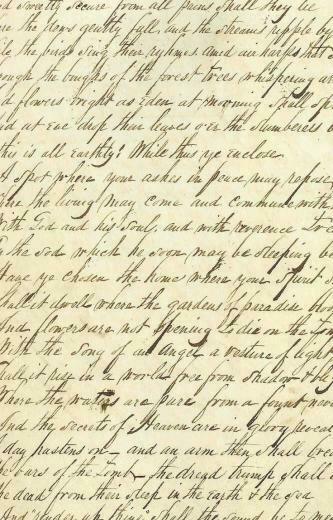 d sweetly secure from all pains shall they lie
the dews gently fall, and the streams ripple by
the birds sing their rhymes amid air harps that
ough the boughs of the forest trees whispering ar
d flowers bright as Eden at morning shall sp
d at eve drop their leaves o'er the slumberers
this is all Earthly! While thus ye enclose
A spot where your ashes in peace may repose
here the living may come and commune with
With God and his soul, and with reverence
the sod which he soon may be sleeping be
Have ye chosen the home where your Spirit s
Shall it dwell where the gardens of paradise bloo
And flowers are not opening to die on the
With the Song of an Angel a vesture of light
Shall it rise in a world free from shadow &
There the waters are pure from a fount neve
And the secrets of Heaven are in glory reveal
day hastens on — and an arm then shall bre
he bars of the tomb — the dread trump shall
he dead from their sleep in the earth & the sea
And render up shall the sound